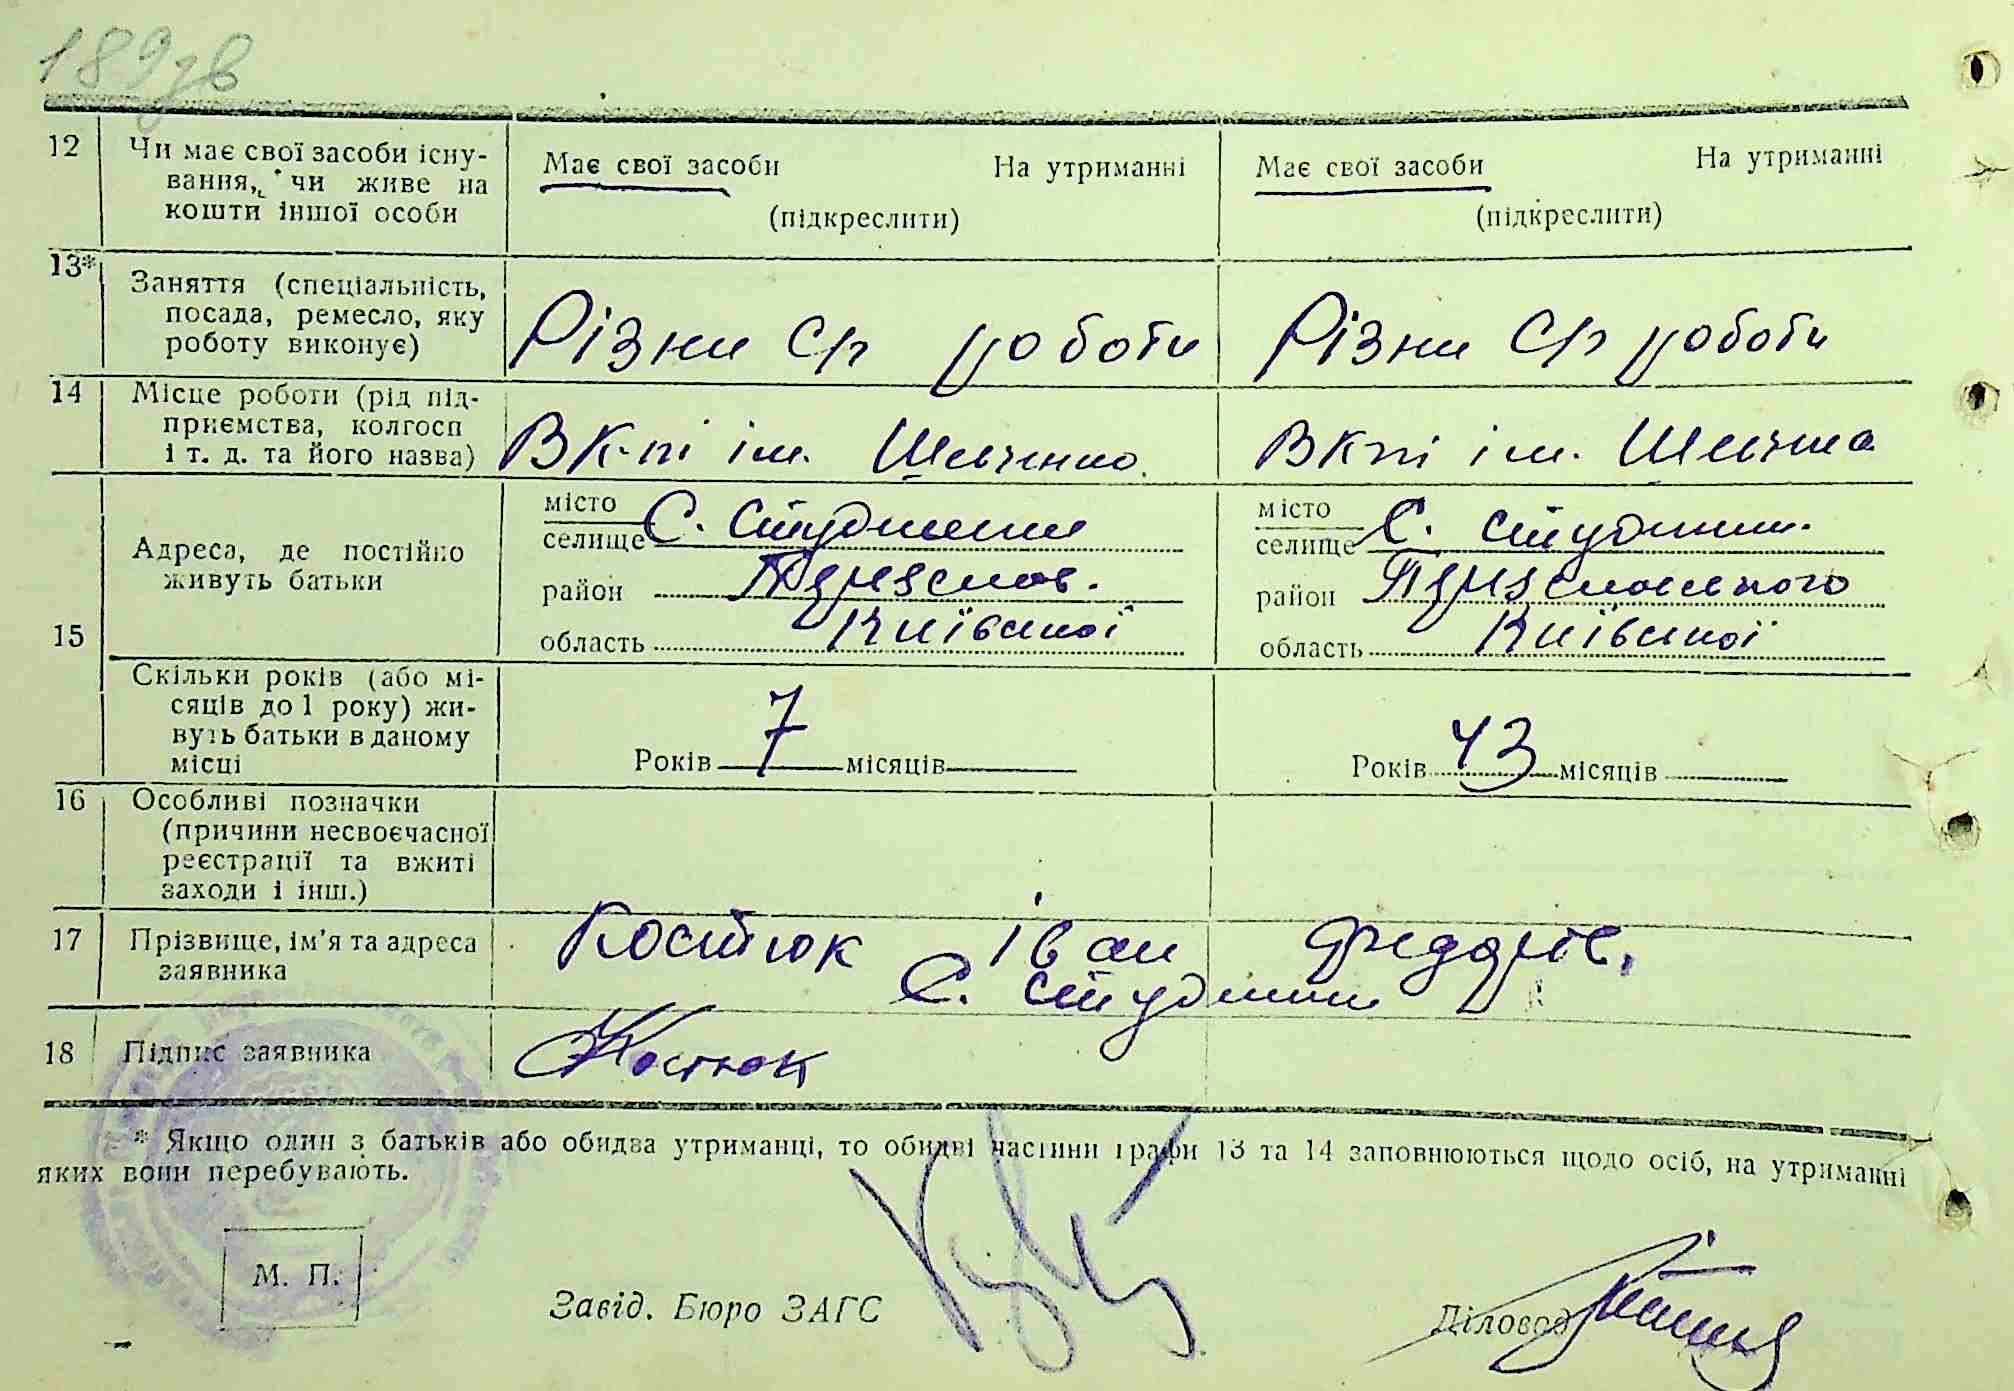 189зв
12 Чи має свої засоби існу-
вання, чи живе на
кошти іншої особи
Має свої засоби На утриманні
(підкреслити)
Має свої засоби На утриманні
(підкреслити)
13* Заняття (спеціальність,
посада, ремесло, яку
роботу виконує)
Різни ср роботи
Різни ср роботи
14 Місце роботи (рід під-
приємства, колгосп
і т. д. та його назва)
В к-пі ім. Шевченко
В кпі ім. Шевченка
15 Адреса, де постійно
живуть батьки
місто
селище С. Студеники
район Переяслав.
область Київської
місто
селище С. Студеники
район Переяславського
область Київської
Скільки років (або мі-
сяців до 1 року) жи-
вуть батьки в даному
місці
Років 7 місяців
Років 43 місяців
16 Особливі позначки
(причини несвоєчасної
реєстрації та вжиті
заходи і інш.)
17 Прізвище, ім'я та адреса
заявника
Костюк Іван Федоров.
С. Студеники
18 Підпис заявника
Костюк
* Якщо один з батьків або обидва утриманці, то обидві частини графи 13 та 14 заповнюються щодо осіб, на утриманні
яких вони перебувають.
М. П.
Завід. Бюро ЗАГС
Діловод